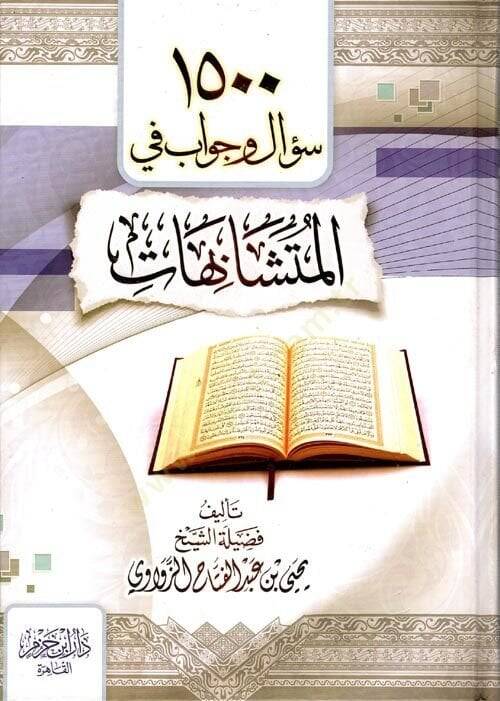 ١٥٠٠
سؤال وجواب في
المُتَشَابِهَاتِ
تأليف
فضيلة الشيخ
يحيى بن عبد الفتاح الزواوي
دار ابن حزم
القاهرة